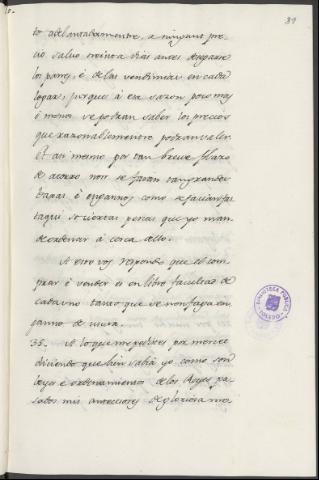 81
to adelantadamente, a ningunt pre-
cio salvo treinta dias antes de coger
los panes, é de las vendimias en cada
logar; porque á esa sazon poco mas
ó menos se podran saber los precios
que razonablemente podran valer.
Et asi mesmo por tan breve plazo
de acaso non se faran tan grandes
trapas é engannos como se facian fas
ta aqui so ciertas penas que yo man-
de ordenar á cerca dello.
A esto vos respondo que el com-
prar é vender es en libre facultad de
cada uno tanto que se non faga en
ganno de usura.
35. A lo que me pedistes por merced
diciendo que bien sabia yo como son
leyes é ordenamientos de los Reyes pa-
sados mis antecesores de gloriosa me-
BIBLIOTECA PUBLICA
TOLEDO